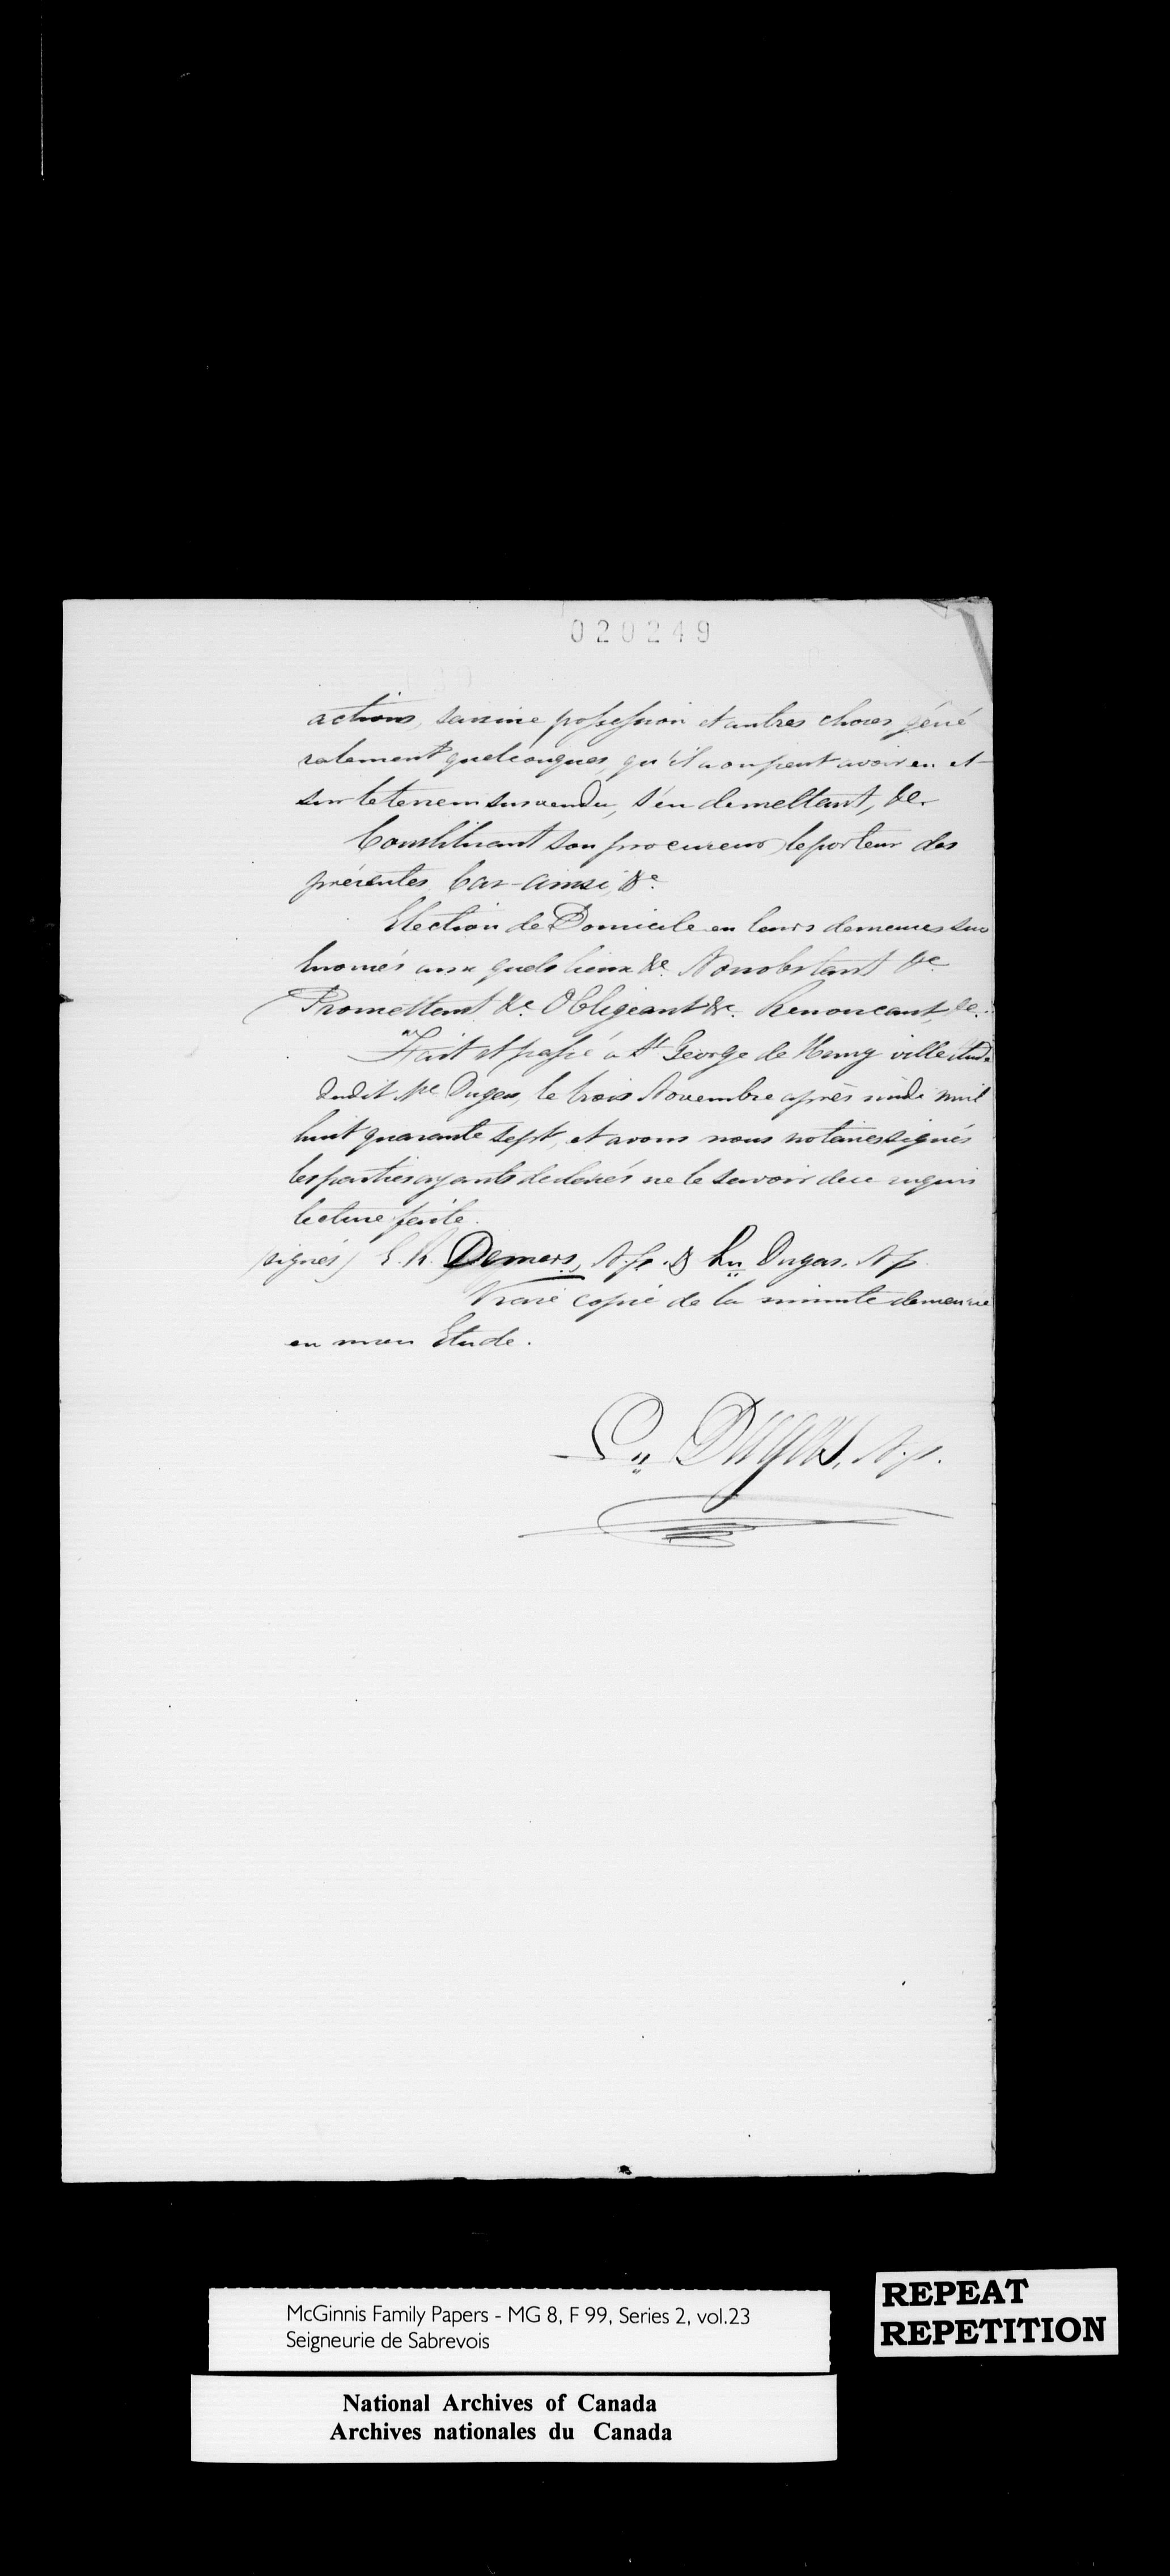 020249
actions, saisine possession et autres choses géné
ralement quelconques, qu'il a ou peut avoir en et
sur le terrein susvendu, s'en demettant, &c.
Constituant son procureur le porteur des
présentes Car-ainsi, &c.
Election de Domicile en leurs demeures sus
énomés aux quels lieux &c. Nonobstant &c
Promettant &c. Obligeant &c. Renoncant, &c.
Fait et passé à St George de Henry ville étude
dudit Mc Dugas, le trois Novembre après midi mil
huit quarante sept, et avons nous notaires signés
les parties ayants declarés ne le savoir de ce requis
lecture faite.
signés) E. R. Demers, N.p. & Ln Dugas. N p.
Vraie copie de la minute demeurée
en mon Etude.
Ln Dugas, N.p.
McGinnis Family Papers - MG 8, F 99, Series 2, vol.23
Seigneurie de Sabrevois
REPEAT
REPETITION
National Archives of Canada
Archives nationales du Canada